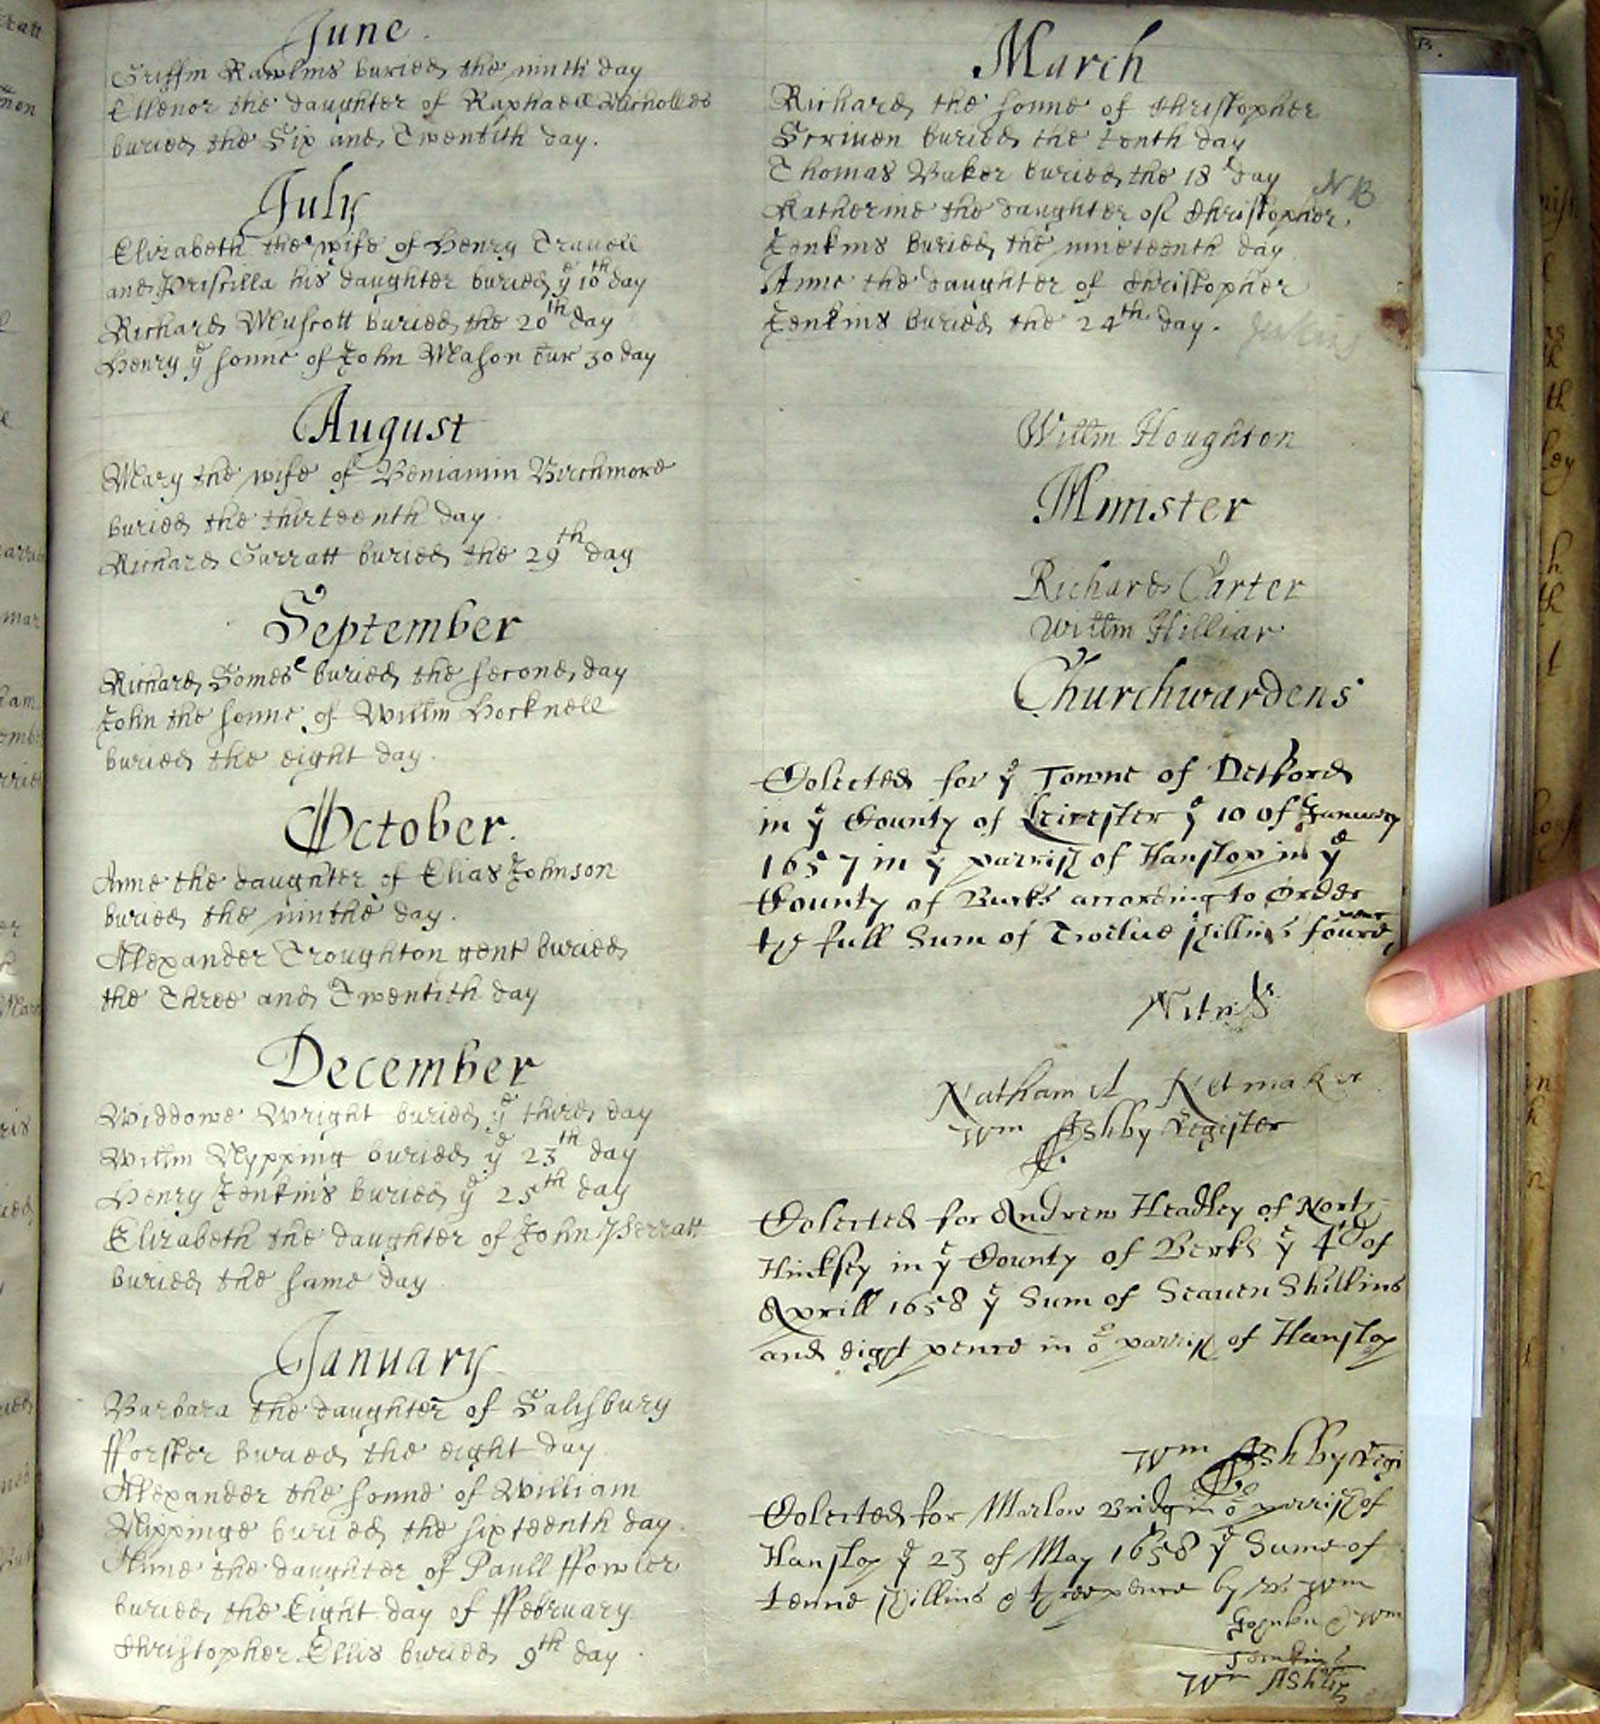 June
Griffin Rawlins buried the ninth day
Ellenor the daughter of Raphaell Nicholles
buried the Six and Twentith day.
July
Elizabeth the wife of Henry Travell
and Priscilla his daughter buried ye 10th day
Richard Muscott buried the 20th day
Henry ye sonne of John Mason bur 30 day
August
Mary the wife of Beniamin Birchmore
buried the thirteenth day
Richard Garratt buried the 29th day
September
Richard Somes buried the second day
John the sonne of Willm Hocknell
buried the eight day.
October.
Anne the daughter of Elias Johnson
buried the ninthe day.
Alexander Troughton gent buried
the Three and Twentith day
December
Widdowe Wright buried ye third day
Willm Nypping buried ye 23th day
Henry Jenkins buried ye 25th day
Elizabeth the daughter of John Sherratt
buried the same day
January
Barbara the daughter of Salisbury
fforster buried the eight day
Alexander the sonne of William
Nippinge buried the sixteenth day
Anne the daughter of Paull ffowler
buried the Eight day of ffebruary
Christopher Ellis buried 9th day
March
Richard the sonne of Christopher
Scriven buried the tenth day
Thomas Baker buried the 18 day NB
Katherine the daughter of Christopher
Jenkins buried the nineteenth day
Anne the daughter of Christopher
Jenkins buried the 24th day.
Willm Houghton
Minister
Richard Carter
Willm Hilliar
Churchwardens
Colected for ye Towne of Detford
in ye County of Leicester ye 10 of January
1657 in ye parrish of Hanslop in ye
County of Bucks according to Order
the full Sum of Twelue shillins foure
Nathaniel Ketmaker
Wm Ashby Register
Colected for Andrew Headley of North
Hinksey in ye County of Berks ye 4th of
Aprill 1658 ye Sum of Seauen Shillins
and eight pence in ye parrish of Hanslop
Wm Ashby Regi
Colected for Marlow Bridg in ye parrish of
Hanslop ye 23 of May 1658 ye Sume of
tenne shillins & threepence by Wm
Wm
Jenkins
Wm Ashby